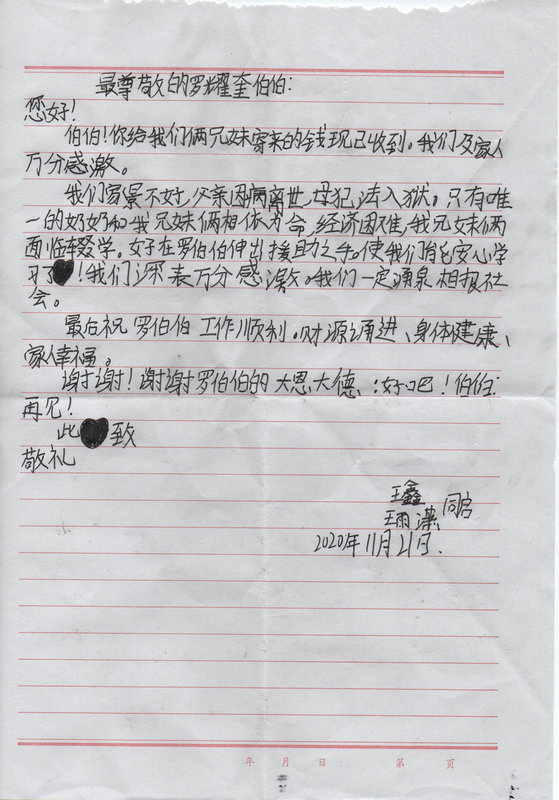 最尊敬的罗耀奎伯伯:
您好!
伯伯!你给我们俩兄妹寄来的钱现已收到。我们及家人
万分感激。
我们家景不好,父亲因病离世,母犯法入狱。只有唯
一的奶奶和我兄妹俩相依为命,经济困难,我兄妹俩
面临辍学。好在罗伯伯伸出援助之手。使我们能安心学
习了!我们深表万分感激。我们一定涌泉相报社
会。
最后祝罗伯伯工作顺利。财源涌进、身体健康、
家人幸福。
谢谢!谢谢罗伯伯的大恩大德!好吧!伯伯:
再见!
此致
敬礼
王鑫
王雨潇 同启
2020年11月21日.
年 月 日 第 页